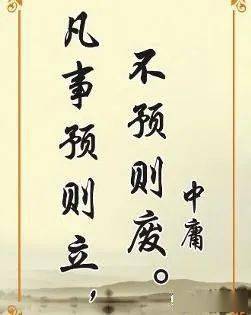 凡事预则立，
不预则废。
中庸